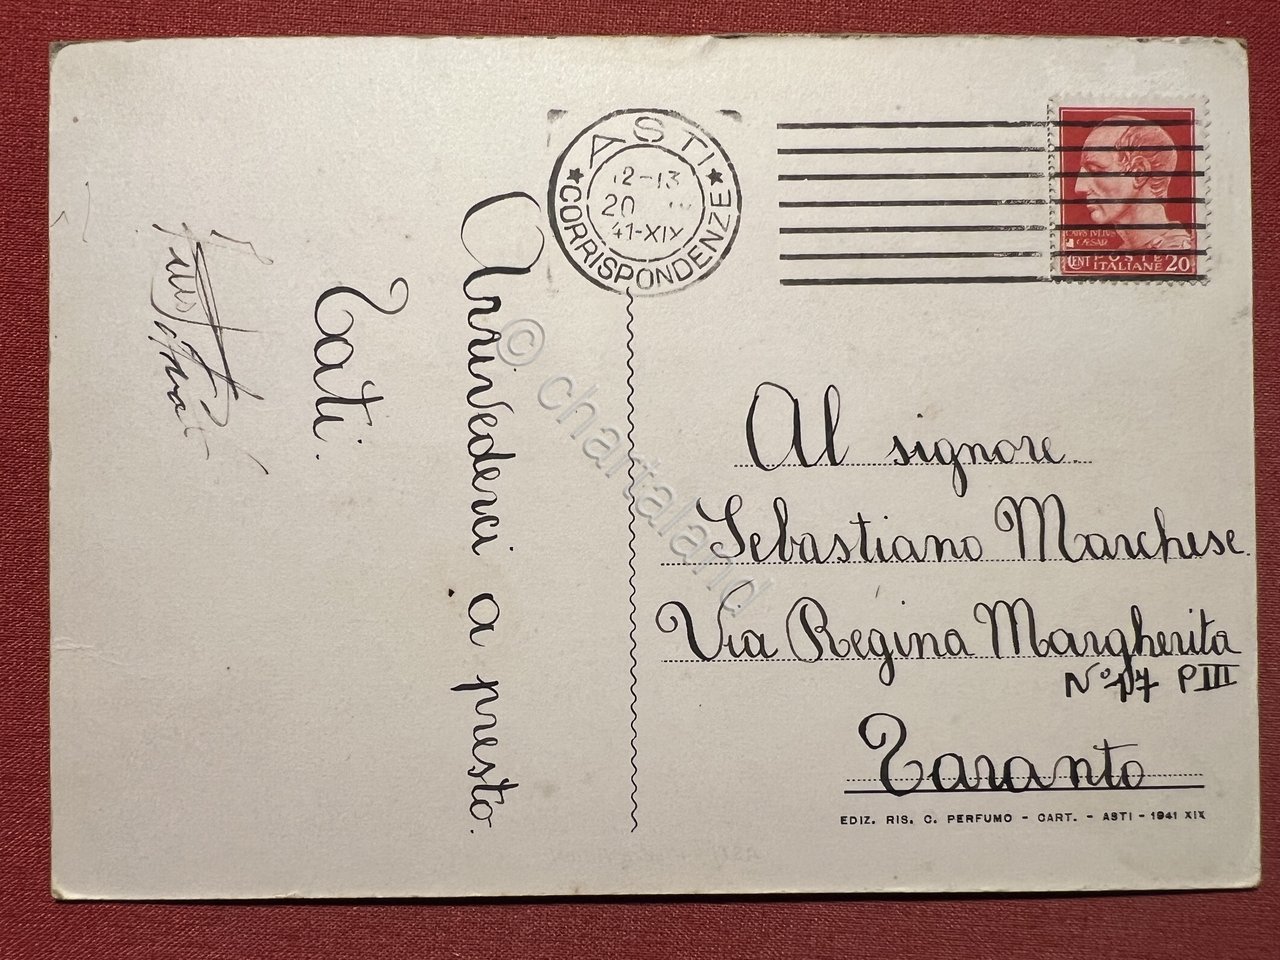 ASTI
CORRISPONDENZE
12-13
20
41-XIX
CENT POSTE
ITALIANE 20
Arrivederci a presto.
Tati.
Al signore
Sebastiano Marchese
Via Regina Margherita
N° 17 P III
Taranto
EDIZ. RIS. C. PERFUMO - CART. - ASTI - 1941 XIX
© chartaland